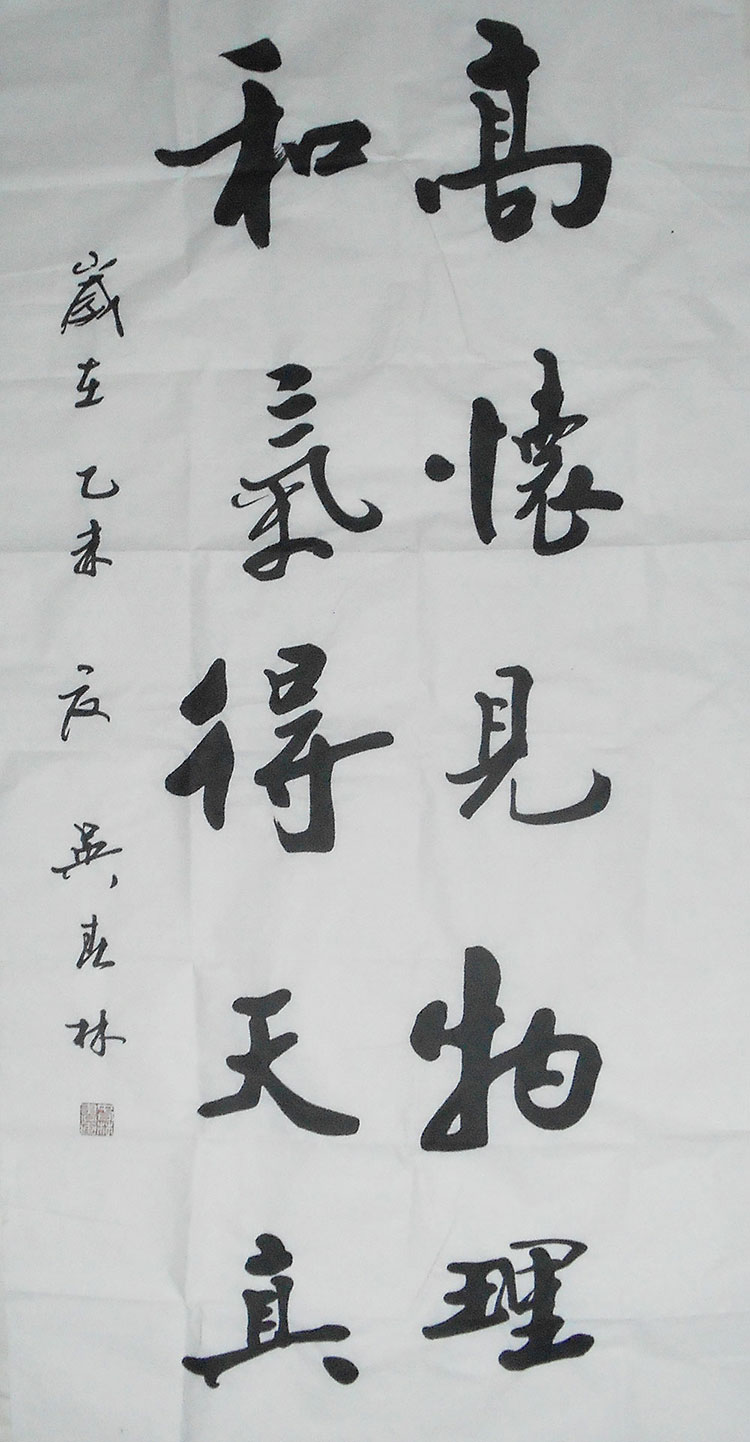 高懷見物理
和氣得天真
歲在乙未夏吳春林